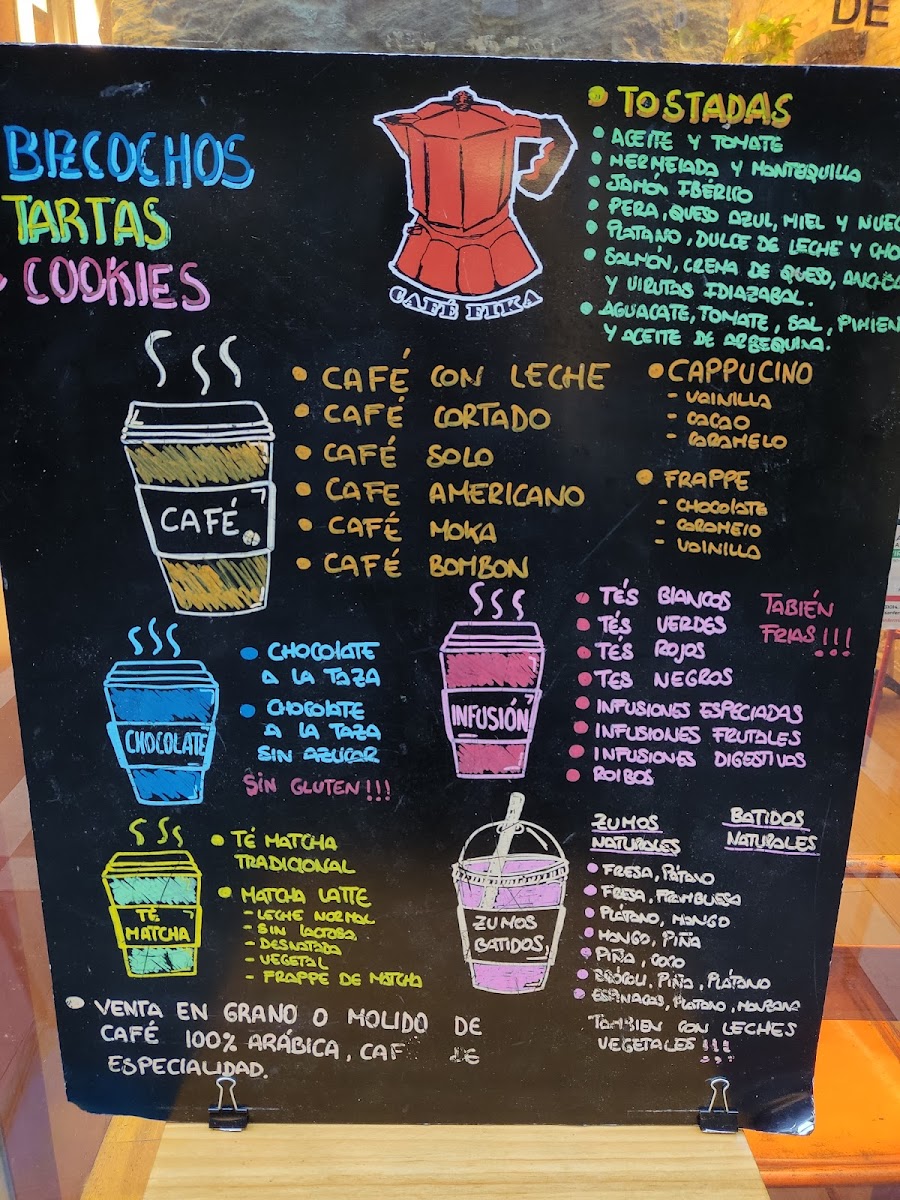 DE
BIZCOCHOS
TARTAS
COOKIES
CAFÉ FIKA
• TOSTADAS
• ACEITE Y TOMATE
• MERMELADA Y MANTEQUILLA
• JAMÓN IBÉRICO
• PERA, QUESO AZUL, MIEL Y NUEC
• PLATANO, DULCE DE LECHE Y CHO
• SALMÓN, CREMA DE QUESO,
Y VIRUTAS IDIAZABAL.
• AGUACATE, TOMATE, SAL, PIMIEN
Y ACEITE DE ARBEQUINA.
CAFÉ
• CAFÉ CON LECHE
• CAFÉ CORTADO
• CAFÉ SOLO
• CAFE AMERICANO
• CAFÉ MOKA
• CAFÉ BOMBON
• CAPPUCINO
- VAINILLA
- CACAO
- CARAMELO
• FRAPPE
- CHOCOLATE
- CARAMELO
- VAINILLA
CHOCOLATE
• CHOCOLATE
A LA TAZA
• CHOCOLATE
A LA TAZA
SIN AZUCAR
SIN GLUTEN!!!
INFUSIÓN
• TÉS BLANCOS
• TÉS VERDES
• TÉS ROJOS
• TES NEGROS
• INFUSIONES ESPECIADAS
• INFUSIONES FRUTALES
• INFUSIONES DIGESTIVAS
• ROIBOS
TABIÉN
FRIAS!!!
TÉ
MATCHA
• TÉ MATCHA
TRADICIONAL
• MATCHA LATTE
- LECHE NORMAL
- SIN LACTOSA
- DESNATADA
- VEGETAL
- FRAPPE DE MATCHA
ZUMOS
BATIDOS
ZUMOS
NATURALES
BATIDOS
NATURALES
• FRESA, PÁTANO
• FRESA, FRAMBUESA
• PLÁTANO, MANGO
• MANGO, PIÑA
• PIÑA, COCO
• BRÓCOLI, PIÑA, PLÁTANO
• ESPINACAS, PLATANO, MANZANA
TAMBIEN CON LECHES
VEGETALES!!!
• VENTA EN GRANO O MOLIDO DE
CAFÉ 100% ARÁBICA, CAF DE
ESPECIALIDAD.